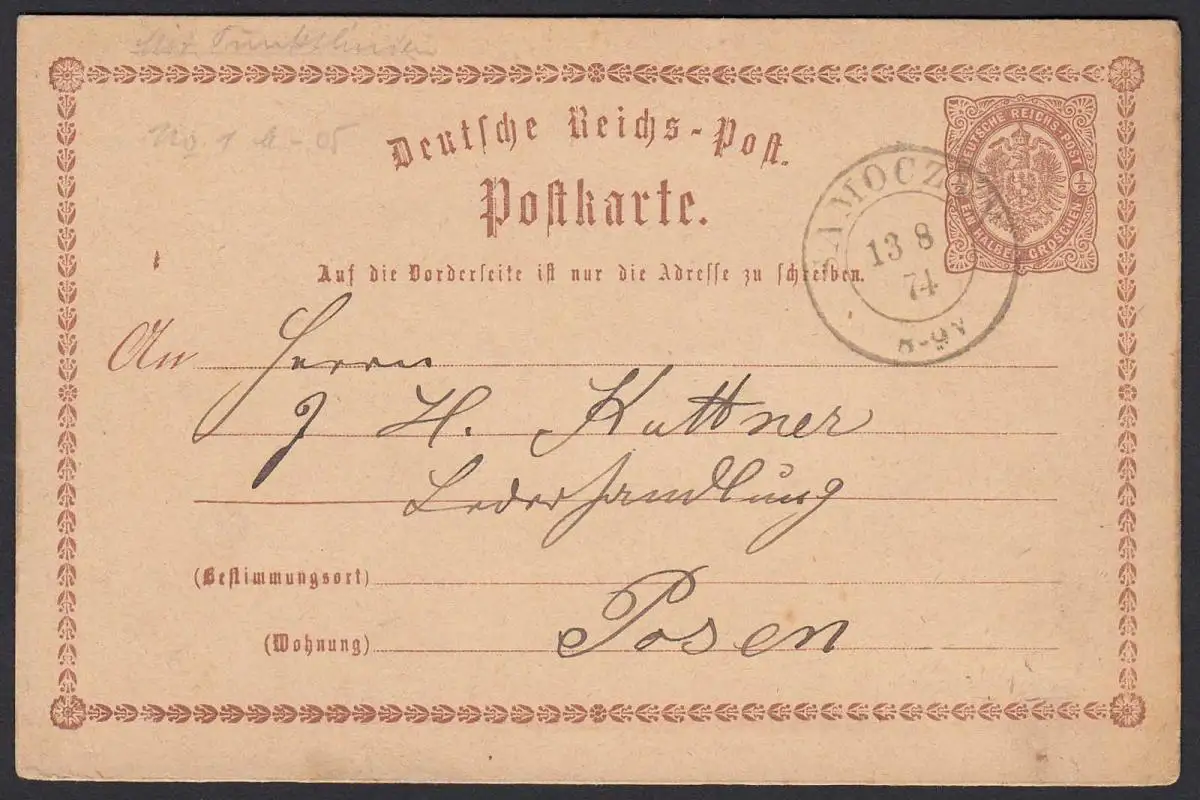 Deutsche Reichs-Post.
Postkarte.
Auf die Vorderseite ist nur die Adresse zu schreiben.
DEUTSCHE REICHS-POST
½ ½
EIN HALBER GROSCHEN
SAMOCZIN
13 8
74
8-9V
No. 1
An Herrn
J H. Kuttner
Lederhandlung
(Bestimmungsort)
Posen
(Wohnung)